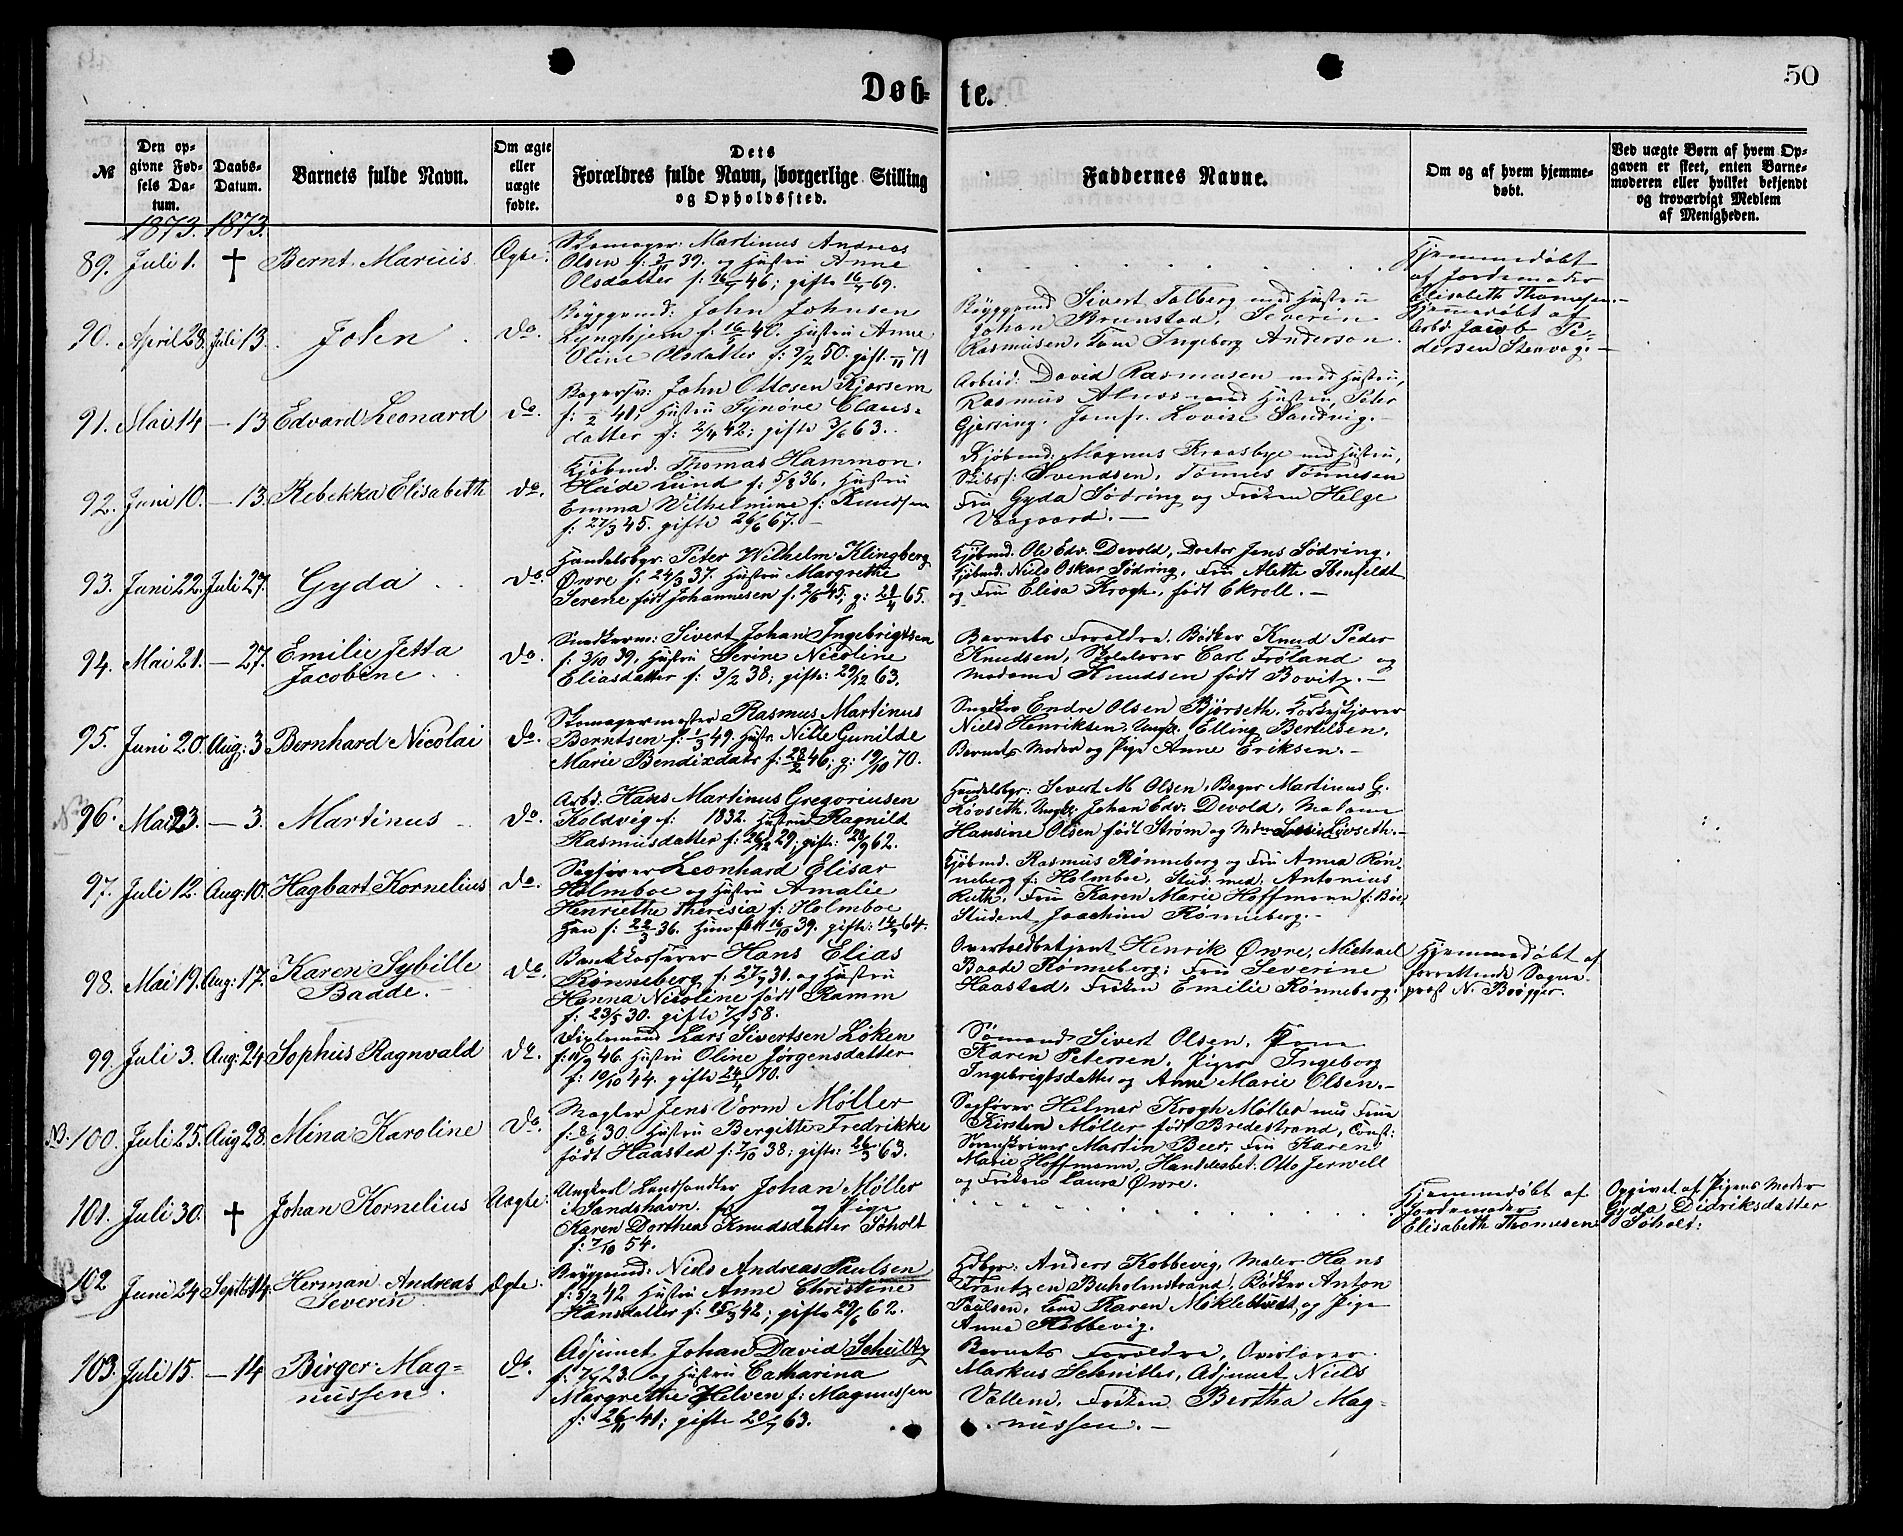 50
Døb-te.
№
Den op-
givne Fød-
sels Da-
tum.
Daabs-
Datum.
Barnets fulde Navn.
Om ægte
eller
uægte
fødte.
Dets
Forældres fulde Navn, borgerlige Stilling
og Opholdssted.
Faddernes Navne.
Om og af hvem hjemme-
døbt.
Ved uægte Børn af hvem Op-
gaven er skeet, enten Barne-
moderen eller hvilket bekjendt
og troværdigt Medlem
af Menigheden.
1873. 1873.
89. Juli 1. † Bernt Marius Ægte.
Skomager: Martinus Andreas
Olsen f: 39. og Hustru Anne
Olsdatter f: 46; gifte 69.
Hjemmedøbt
af Jordemoder
Elisabeth Thomesen.
90. April 28. Juli 13. John do.
Byggmd: John Johnsen
Lynghjem f: 16/5 40. Hustru Anne
Oline Olsdatter f: 9/2 50. gift 71
Byggmd Sivert Talberg med Hustru
Johan Brunstad, Severin
Rasmusen, Ingeborg Anderson.
Hjemmedøbt af
Arbd. Jacob Pe-
dersen Stenvog.-
91. Mai 14 — 13 Edvard Leonard do.
Bagersv: John Ottesen Kjorsem
f: 41; Hustru Synøve Claus-
datter f: 2/4 42; gifte 3/6 63.
Arbeid: David Rasmusen med Hustru,
Rasmus Alnes med Hustru, Peter
Gjersing. Jomfr. Lovise Sandvig.-
92. Juni 10. — 13. Rebekka Elisabeth do.
Kjøbmd. Thomas Hammon
Heide Lund f: 5/8 36. Hustru
Emma Wilhelmine f: Knudsen
f: 27/3 45. gifte 26/6 67.-
Kjøbmd: Magnus Kraasbye med Hustru,
Skibsf: Svendsen, Tønnes Tønnesen
Fru Gyda Sødring og Frøken Helge
Vaagaard.-
93. Juni 22. Juli 27. Gyda do.
Handelsbgr: Peter Wilhelm Klingberg
Øwre f: 24/3 37. Hustru Margrethe
Serene født Johannesen f. 2/6 45, g: 65.
Kjøbmd. Ole Edv. Devold, Doctor Jens Sødring,
Kjøbmd: Niels Oskar Sødring, Fru Alette Ibenfeldt
og Fru Elisa Krogh, født Ekroll.-
94. Mai 21. — 27. Emilie Jetta
Jacobine. do.
Snedkerm: Sivert Johan Ingebrigtsen
f: 3/10 39. Hustru Serine Nicoline
Eliasdatter f: 3/2 38; gifte: 29/12 63.
Barnets Forældre. Bødker Knud Peder
Knudsen, Skolelærer Carl Frøland og
Madame Knudsen født Bovitz.-
95. Juni 20. Aug: 3 Bernhard Nicolai do.
Skomagermester Rasmus Martinus
Berntsen f: 1/3 49. Hustr. Nille Gunilde
Marie Bendixdatr f: 46; g: 19/10 70.
Snedker Endre Olsen Bjørseth,
Niels Henriksen, Ungk. Elling Bertelsen,
Barnets Moder og Pige Anne Eriksen.-
96. Mai 23. — 3. Martinus do.
Arbd. Hans Martinus Gregoriusen
Koldvig f: 1832. Hustru Ragnild
Rasmusdatter f: 29; gifte: 62.
Handelsbgr: Sivert M Olsen, Bager Martinus G.
Løvseth, Ungk: Johan Edv. Devold, Madame
Hansine Olsen født Strøm og Løvseth.-
97. Juli 12. Aug: 10. Hagbart Kornelius do.
Sagfører Leonhard Elisar
Holmboe og Hustru Amalie
Henriethe Theresia f: Holmboe
Han f: 22/3 36. Hun født 16/10 39. gifte: 64.
Kjøbmd. Rasmus Rønneberg og Fru Anna Røn-
neberg f: Holmboe, Stud. med. Antonius
Ruth. Fru Karen Marie Hoffmann f: Bøe,
Student Joachim Rønneberg.-
98. Mai 19. Aug: 17. Karen Sybille
Baade.- do.
Bankkasserer Hans Elias
Rønneberg f: 31. og Hustru
Hanna Nicoline født Ramm
f: 23/5 30. gifte 58.
Overtoldbetjent Henrik Øwre, Michael
Baade Rønneberg; Fru Severine
Haasted, Frøken Emilie Rønneberg.
Hjemmedøbt af
forrettende Sogne-
prest N. Brøgger.
99. Juli 3. Aug: 24. Sophus Ragnvald do.
Lars Sivertsen Løken
f: 46. Hustru Oline Jørgensdatter
f: 19/10 44. gifte 70.
Sømand Sivert Olsen,
Karen Petersen. Piger Ingeborg
Ingebrigtsdatter og Anne Marie Olsen.-
NB. 100. Juli 25. Aug 28. Mina Karoline do.
Magler Jens Worm Møller
f: 8/6 30. Hustru Bergitte Fredrikke
født Haasted f: 7/10 38; gifte: 63.
Sagfører Helmer Krogh Møller med Frue
Kirsten Møller født Bredestrand, Const:
Sorenskriver Martin Beer, Fru Karen
Marie Hoffmann, Handelsbet: Otto Jerwell
og Frøken Laura Øwre.
101. Juli 30. † Johan Kornelius Uægte:
Ungkarl Landhandler Johan Møller
i Sandshavn. og Pige
Karen Dorthea Knudsdatter Søholt
f: 7/10 54.
Hjemmedøbt af
Jordemoder
Elisabeth Thomesen
Opgivet af Pigens Moder
Gyda Didriksdatter
Søholt.
102. Juni 24 Septbr 14. Herman Andreas
Severin Ægte.
Byggmd: Niels Andreas Paulsen
f: 5/2 42. Hustru Anne Christine
Hansdatter f: 42; gifte 29/6 62.
Hdbgr: Anders Kobbevig, Maler Hans
Frantzen Buholmstrand, Bødker Anton
Paulsen, Karen Mökletvedt og Pige
Anne Kobbevig.
103. Juli 15. — 14 Birger Mag-
nussen. do.
Adjunct Johan David Schultz
f: 23. og Hustru Catharina
Margrethe Helven f: Magnussen
f: 41; gifte 63.
Barnets Forældre, Overlærer
Markus Schnitler, Adjunct Niels
Vollem, Frøken Bertha Mag-
nussen.-